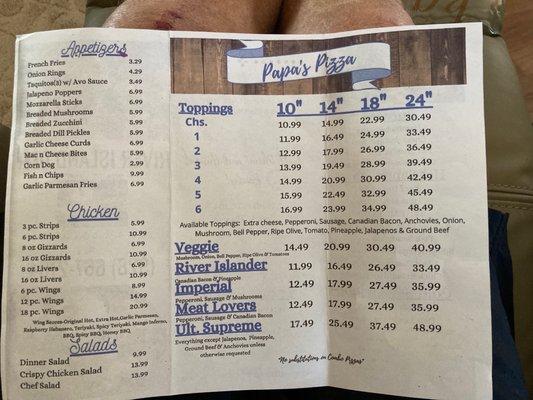 Appetizers
French Fries 3.29
Onion Rings 4.29
Taquitos(2) w/ Avo Sauce 3.49
Jalapeno Poppers 6.99
Mozzarella Sticks 6.99
Breaded Mushrooms 5.99
Breaded Zucchini 5.99
Breaded Dill Pickles 5.99
Garlic Cheese Curds 6.99
Mac n Cheese Bites 6.99
Corn Dog 2.99
Fish n Chips 9.99
Garlic Parmesan Fries 6.99
Chicken
3 pc. Strips 5.99
6 pc. Strips 10.99
8 oz Gizzards 6.99
16 oz Gizzards 10.99
8 oz Livers 6.99
16 oz Livers 10.99
6 pc. Wings 8.99
12 pc. Wings 14.99
18 pc. Wings 20.99
Wing Sauces-Original Hot, Extra Hot, Garlic Parmesan,
Raspberry Habanero, Teriyaki, Spicy Teriyaki, Mango Inferno,
BBQ, Spicy BBQ, Honey BBQ
Salads
Dinner Salad 9.99
Crispy Chicken Salad 13.99
Chef Salad 13.99
Papa's Pizza
Toppings 10" 14" 18" 24"
Chs. 10.99 14.99 22.99 30.49
1 11.99 16.49 24.99 33.49
2 12.99 17.99 26.99 36.49
3 13.99 19.49 28.99 39.49
4 14.99 20.99 30.99 42.49
5 15.99 22.49 32.99 45.49
6 16.99 23.99 34.99 48.49
Available Toppings: Extra cheese, Pepperoni, Sausage, Canadian Bacon, Anchovies, Onion,
Mushroom, Bell Pepper, Ripe Olive, Tomato, Pineapple, Jalapenos & Ground Beef
Veggie 14.49 20.99 30.49 40.99
Mushrooms, Onion, Bell Pepper, Ripe Olive & Tomatoes
River Islander 11.99 16.49 26.49 33.49
Canadian Bacon & Pineapple
Imperial 12.49 17.99 27.49 35.99
Pepperoni, Sausage & Mushrooms
Meat Lovers 12.49 17.99 27.49 35.99
Pepperoni, Sausage & Canadian Bacon
Ult. Supreme 17.49 25.49 37.49 48.99
Everything except Jalapenos, Pineapple,
Ground Beef & Anchovies unless
otherwise requested
*No substitutions on Combo Pizzas*